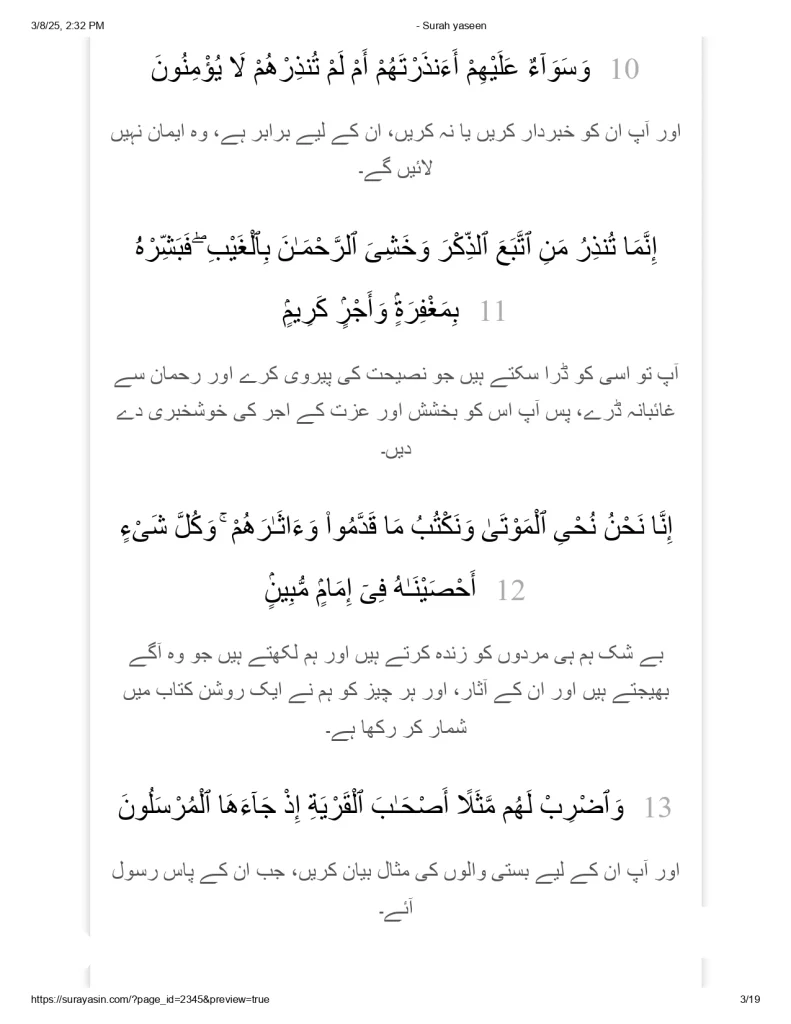 3/8/25, 2:32 PM - Surah yaseen
وَسَوَآءٌ عَلَيْهِمْ أَءَنذَرْتَهُمْ أَمْ لَمْ تُنذِرْهُمْ لَا يُؤْمِنُونَ 10
اور آپ ان کو خبردار کریں یا نہ کریں، ان کے لیے برابر ہے، وہ ایمان نہیں
لائیں گے۔
إِنَّمَا تُنذِرُ مَنِ ٱتَّبَعَ ٱلذِّكْرَ وَخَشِىَ ٱلرَّحْمَـٰنَ بِٱلْغَيْبِ ۖ فَبَشِّرْهُ
بِمَغْفِرَةٍۢ وَأَجْرٍۢ كَرِيمٍۢ 11
آپ تو اسی کو ڈرا سکتے ہیں جو نصیحت کی پیروی کرے اور رحمان سے
غائبانہ ڈرے، پس آپ اس کو بخشش اور عزت کے اجر کی خوشخبری دے
دیں۔
إِنَّا نَحْنُ نُحْىِ ٱلْمَوْتَىٰ وَنَكْتُبُ مَا قَدَّمُوا۟ وَءَاثَـٰرَهُمْ ۚ وَكُلَّ شَىْءٍ
أَحْصَيْنَـٰهُ فِىٓ إِمَامٍۢ مُّبِينٍۢ 12
بے شک ہم ہی مردوں کو زندہ کرتے ہیں اور ہم لکھتے ہیں جو وہ آگے
بھیجتے ہیں اور ان کے آثار، اور ہر چیز کو ہم نے ایک روشن کتاب میں
شمار کر رکھا ہے۔
وَٱضْرِبْ لَهُم مَّثَلًا أَصْحَـٰبَ ٱلْقَرْيَةِ إِذْ جَآءَهَا ٱلْمُرْسَلُونَ 13
اور آپ ان کے لیے بستی والوں کی مثال بیان کریں، جب ان کے پاس رسول
آئے۔
https://surayasin.com/?page_id=2345&preview=true 3/19